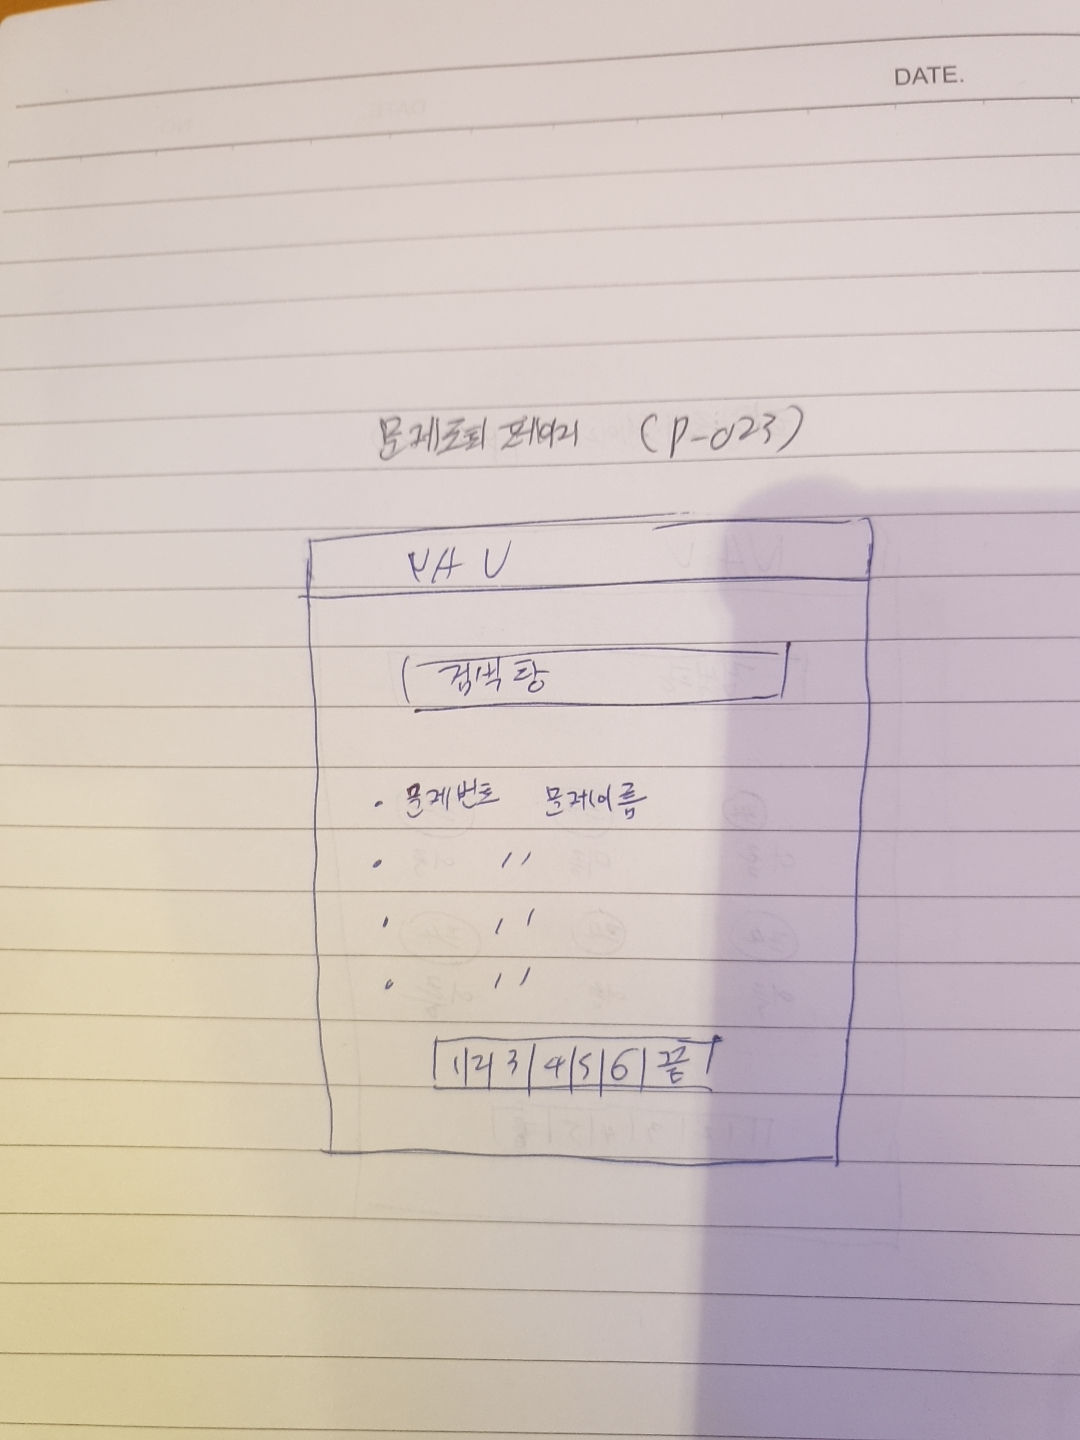 DATE.
문제조회 페이지 (P-023)
NAV
검색 탕
· 문제번호 문제이름
· 〃
· 〃
· 〃
1 2 3 4 5 6 끝